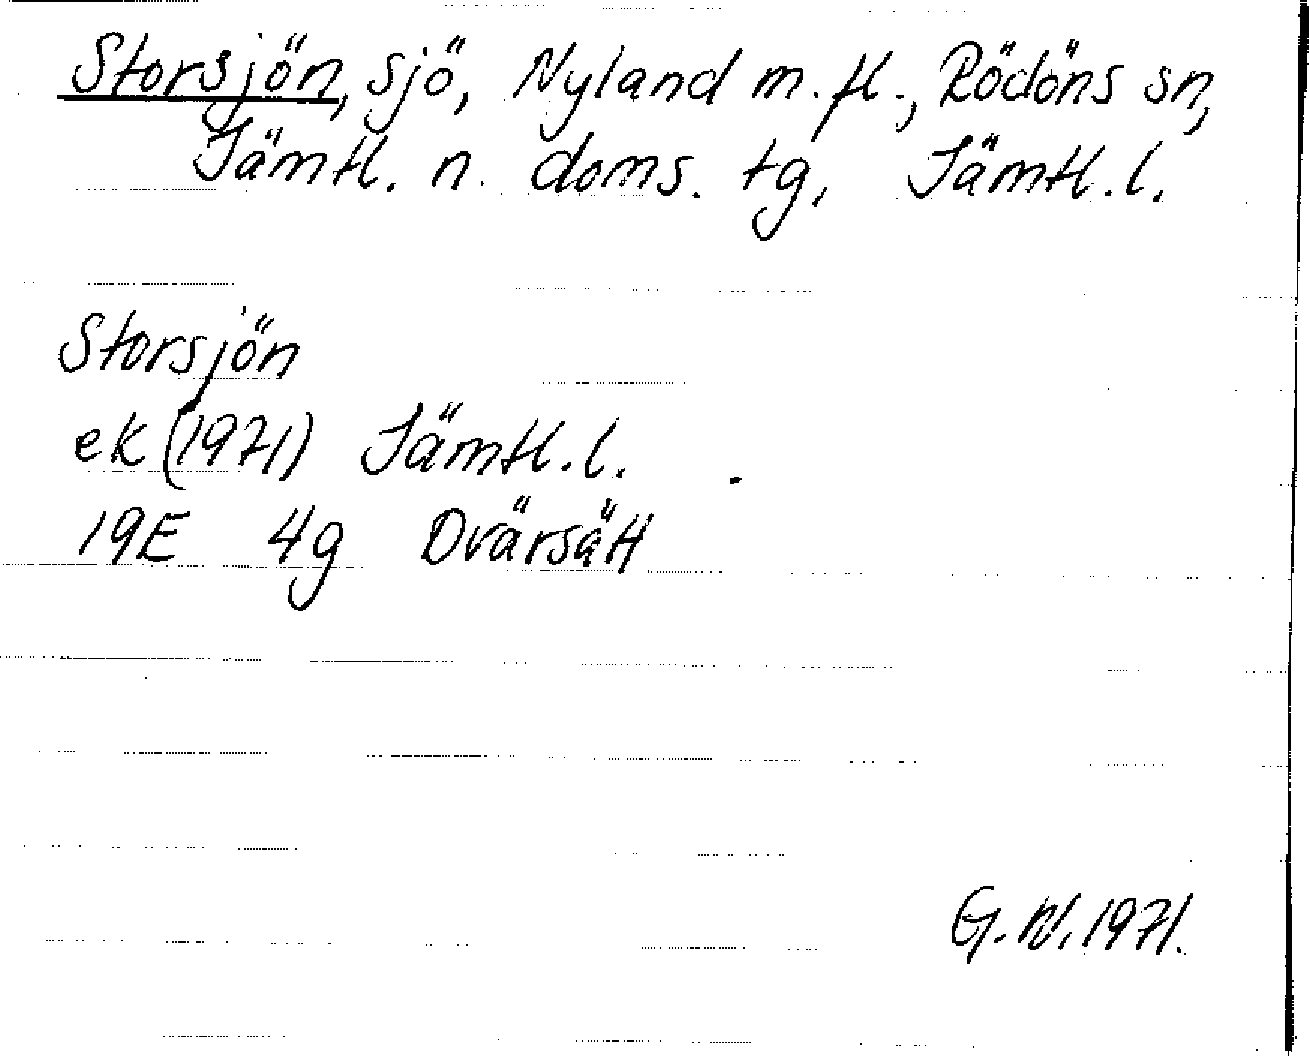 Storsjön, sjö, Nyland m.fl., Rödöns sn,
Jämtl. n. doms. tg, Jämtl.l.
Storsjön
ek (1971) Jämtl.l.
19E 4g Dvärsätt
G.N. 1971.